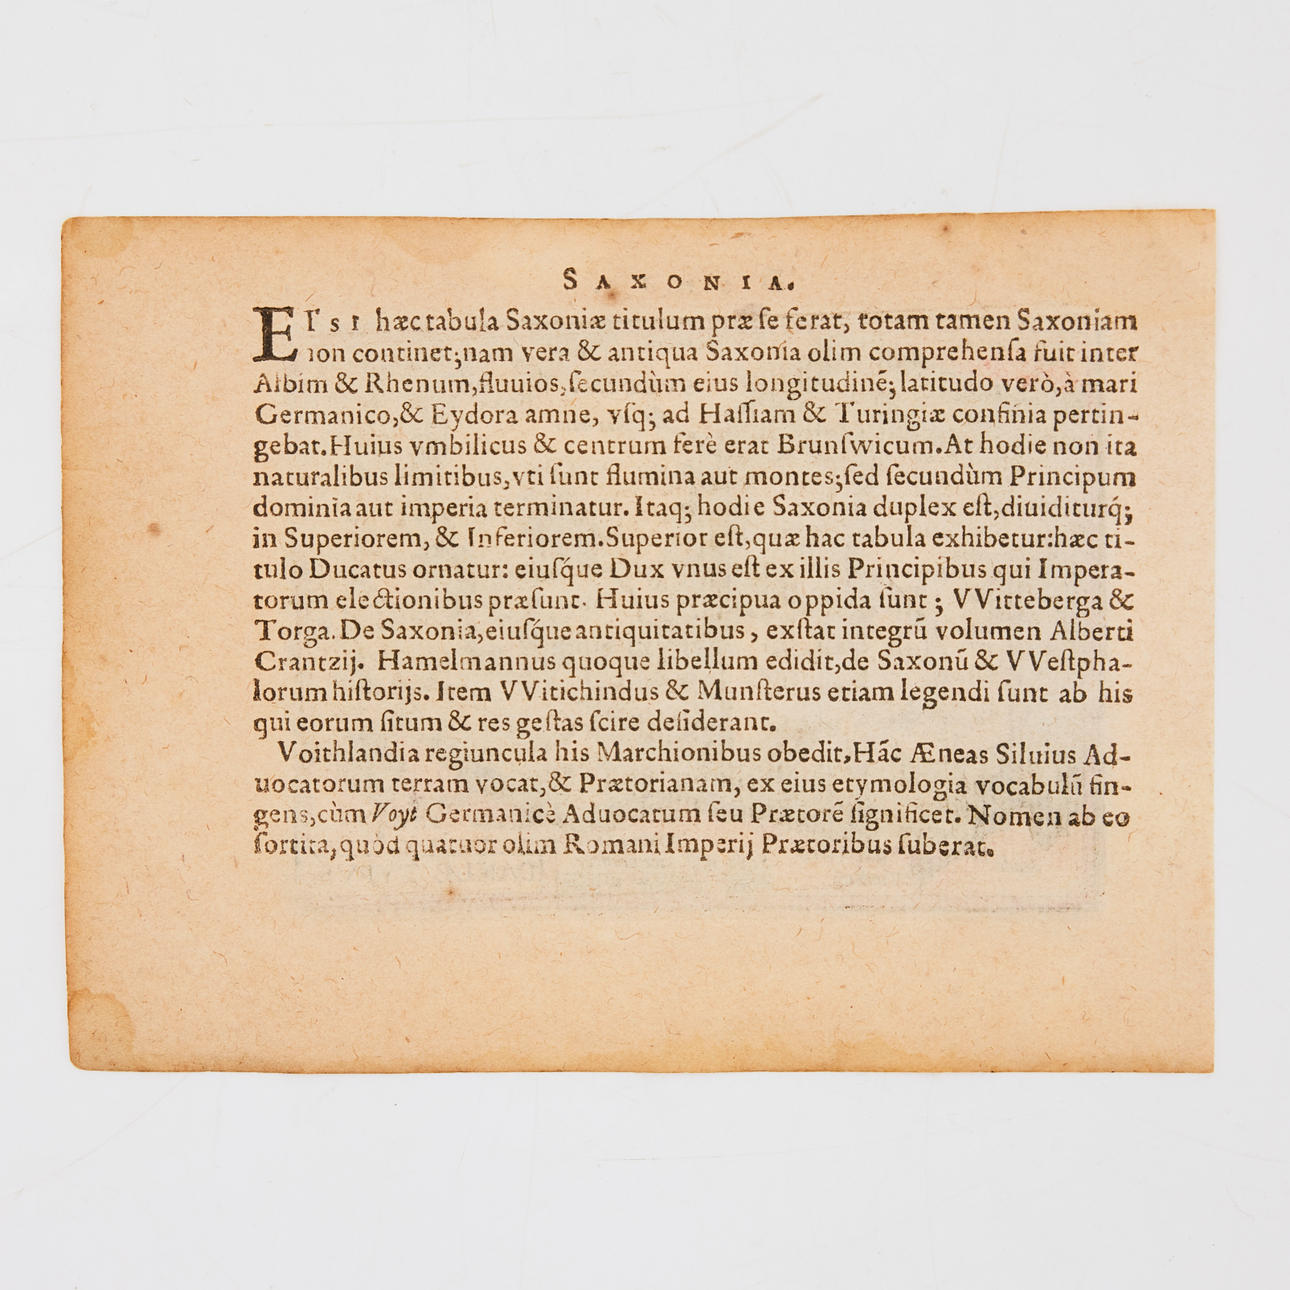 SAXONIA.
ETSI hæc tabula Saxoniæ titulum præ ſe ferat, totam tamen Saxoniam
non continet; nam vera & antiqua Saxonia olim comprehenſa fuit inter
Albim & Rhenum, fluuios, ſecundùm eius longitudinē; latitudo verò, à mari
Germanico, & Eydora amne, vſq; ad Haſſiam & Turingiæ confinia pertin-
gebat. Huius vmbilicus & centrum ferè erat Brunſwicum. At hodie non ita
naturalibus limitibus, vti ſunt flumina aut montes; ſed ſecundùm Principum
dominia aut imperia terminatur. Itaq; hodie Saxonia duplex eſt, diuiditurq́;
in Superiorem, & Inferiorem. Superior eſt, quæ hac tabula exhibetur: hæc ti-
tulo Ducatus ornatur: eiuſq́ue Dux vnus eſt ex illis Principibus qui Impera-
torum electionibus præſunt. Huius præcipua oppida ſunt; VVitteberga &
Torga. De Saxonia, eiuſq́ue antiquitatibus, exſtat integrū volumen Alberti
Crantzij. Hamelmannus quoque libellum edidit, de Saxonū & VVeſtpha-
lorum hiſtorijs. Item VVitichindus & Munſterus etiam legendi ſunt ab his
qui eorum ſitum & res geſtas ſcire deſiderant.
Voithlandia regiuncula his Marchionibus obedit, Hāc Æneas Siluius Ad-
uocatorum terram vocat, & Prætorianam, ex eius etymologia vocabulū fin-
gens, cùm Voyt Germanicè Aduocatum ſeu Prætorē ſignificet. Nomen ab eo
ſortita, quòd quatuor olim Romani Imperij Prætoribus ſuberat.